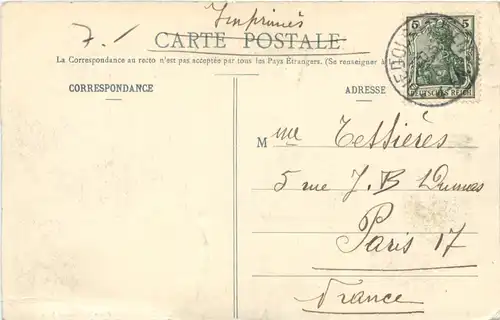 Imprimés
7. /
CARTE POSTALE
La Correspondance au recto n'est pas acceptée par tous les Pays Étrangers. (Se renseigner à
CORRESPONDANCE
ADRESSE
5 5
DEUTSCHES REICH
Mme Tessières
5 rue J. B Dumas
Paris 17
France